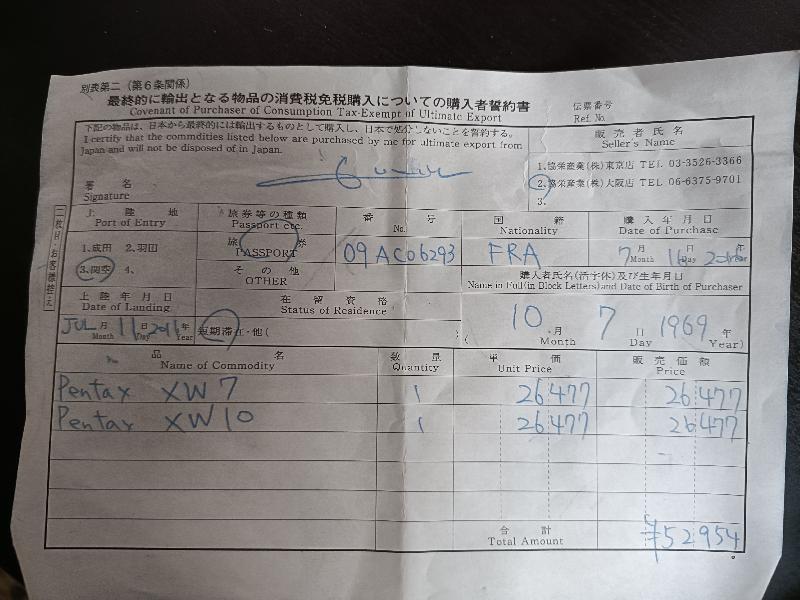 別表第二(第6条関係)
最終的に輸出となる物品の消費税免税購入についての購入者誓約書
Covenant of Purchaser of Consumption Tax-Exempt of Ultimate Export
伝票番号
Ref. No.
下記の物品は、日本から最終的には輸出するものとして購入し、日本で処分しないことを誓約する。
I certify that the commdities listed below are purchased by me for ultimate export from
Japan and will not be disposed of in Japan.
署名
Signature
販売者氏名
Seller's Name
1.協栄産業(株)東京店 TEL 03-3526-3366
2.協栄産業(株)大阪店 TEL 06-6375-9701
3.
二枚目・お客様控え
上陸地
Port of Entry
1.成田 2.羽田
3.関空 4.
旅券等の種類
Passport etc.
旅券
PASSPORT
その他
OTHER
番号
No.
09AC06293
国籍
Nationality
FRA
購入年月日
Date of Purchase
7月 16日 2016年
Month Day Year
上陸年月日
Date of Landing
JUL月 11日 2016年
Month Day Year
在留資格
Status of Residence
短期滞在・他( )
購入者氏名(活字体)及び生年月日
Name in Full(in Block Letters)and Date of Birth of Purchaser
10月 7日 1969年
( Month Day Year)
品名
Name of Commodity
数量
Quantity
単価
Unit Price
販売価額
Price
Pentax XW7 1 26477 26477
Pentax XW10 1 26477 26477
合計
Total Amount
¥52954